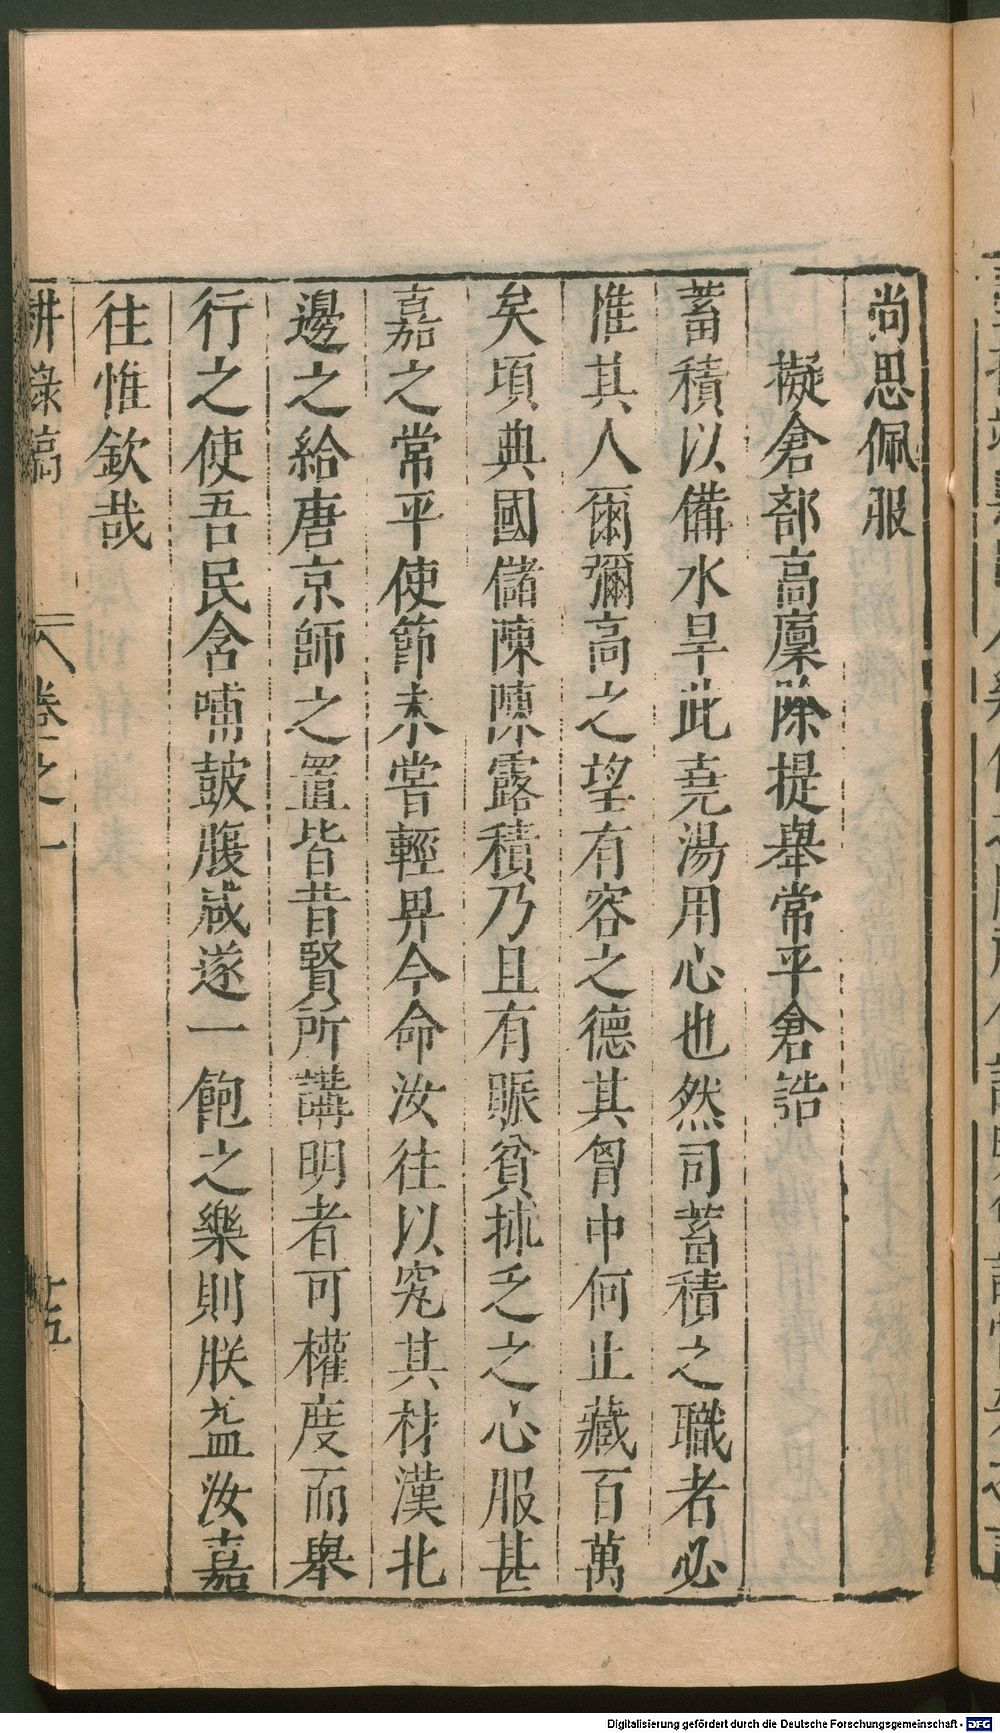 尚思佩服
擬倉部高廩除提舉常平倉誥
蓄積以備水旱此堯湯用心也然司蓄積之職者必
惟其人爾彌高之望有容之德其胷中何止藏百萬
矣頃典國儲陳陳露積乃且有賑貧拯乏之心服甚
嘉之常平使節未嘗輕畀今命汝往以究其材漢北
邊之給唐京師之置皆昔賢所講明者可權度而舉
行之使吾民含哺鼓腹咸遂一飽之樂則朕益汝嘉
往惟欽哉
耕祿稿 卷之一 十五
Digitalisierung gefördert durch die Deutsche Forschungsgemeinschaft - DFG